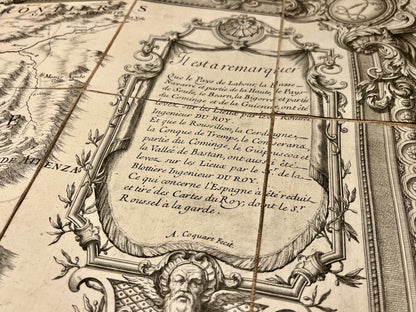 Il est a remarquer
Que le Pays de Labour, la Basse
Navarre et partie de la Haute, le Pays
de Soule, le Bearn, le Bigorre, et partie
de Cominge, et de la Guienne, ont été
levez sur les Lieux par
Ingenieur DU ROY.
Et que le Roussillon, la Cerdagne,
la Conque de Tremp, le Conserans,
partie du Cominge, le Guipuscoa, et
la Vallée de Bastan, ont aussi été
levez sur les Lieux par le Sr. de la
Blottiere Ingenieur DU ROY.
Ce qui concerne l'Espagne a été reduit
et tiré des Cartes du Roy; dont le Sr.
Roussel à la garde.
A. Coquart Fecit.
S
E
DE ATIENZA